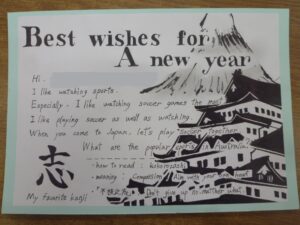 Best wishes for
A new year
Hi.
I like watching sports.
Especially, I like watching soccer games the most.
I like playing soccer as well as watching.
When you come to Japan, let's play soccer together.
What are the popular sports in Australia?
志
・how to read : kokorozashi
・meaning : Compassion, Aim with your one heart
My favorite kanji
Don't give up no matter what.